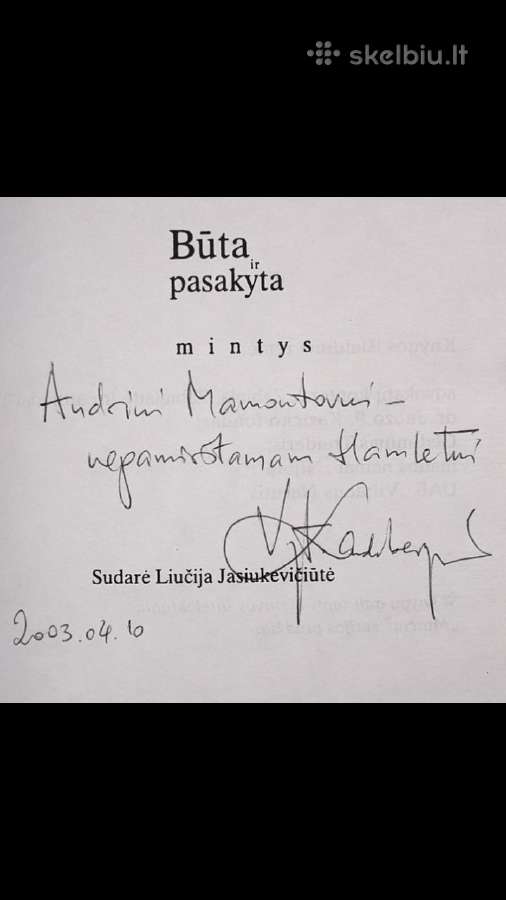 skelbiu.lt
Būta
ir
pasakyta
mintys
Andriui Mamontovui –
nepamirštamam Hamletui
Sudarė Liučija Jasiukevičiūtė
2003.04.10